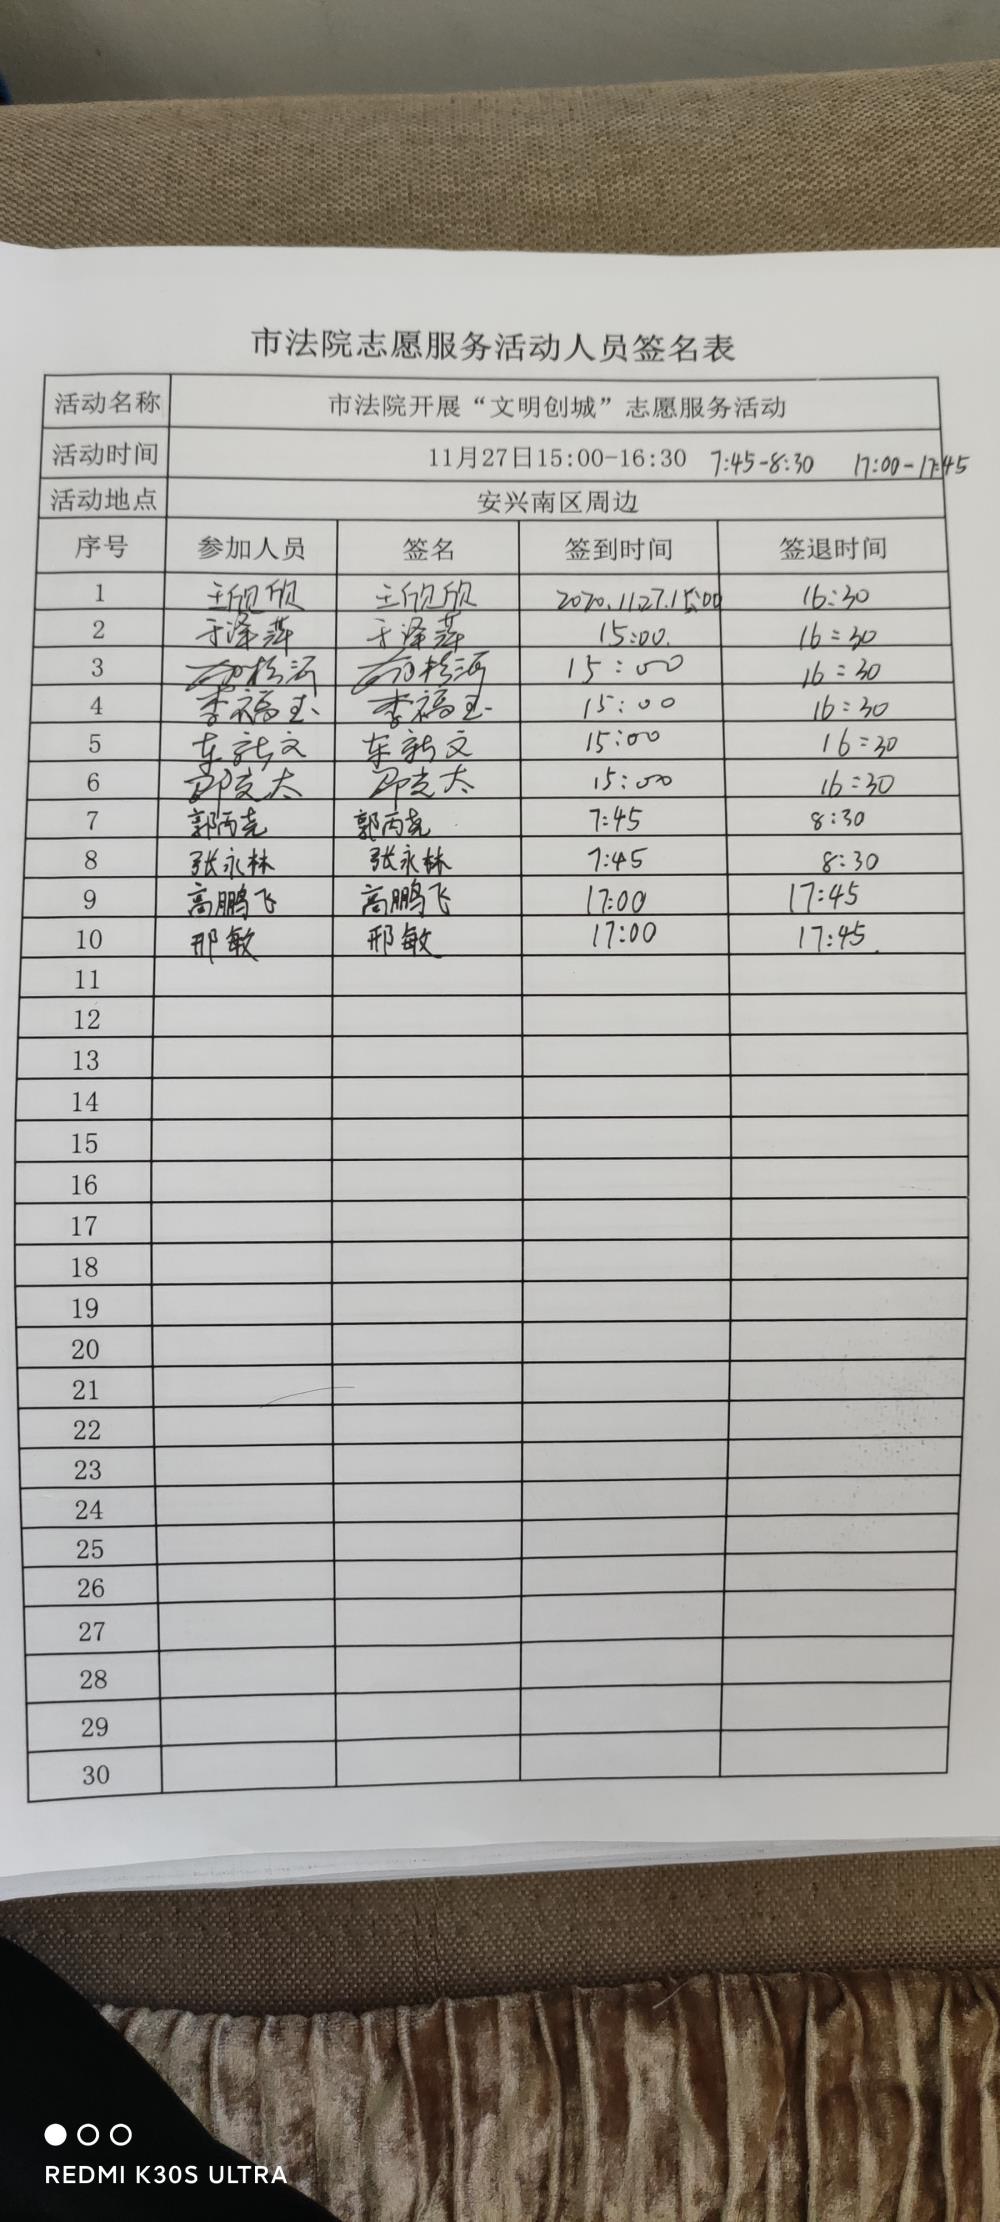 市法院志愿服务活动人员签名表
活动名称 市法院开展“文明创城”志愿服务活动
活动时间 11月27日15:00-16:30 7:45-8:30 17:00-17:45
活动地点 安兴南区周边
序号 参加人员 签名 签到时间 签退时间
1 王欣欣 王欣欣 2020.11.27.15:00 16:30
2 于泽萍 于泽萍 15:00. 16:30
3 15:00 16:30
4 李福玉 李福玉 15:00 16:30
5 车新文 车新文 15:00 16:30
6 15:00 16:30
7 郭丙尧 郭丙尧 7:45 8:30
8 张永林 张永林 7:45 8:30
9 高鹏飞 高鹏飞 17:00 17:45
10 邢敏 邢敏 17:00 17:45
11
12
13
14
15
16
17
18
19
20
21
22
23
24
25
26
27
28
29
30
REDMI K30S ULTRA